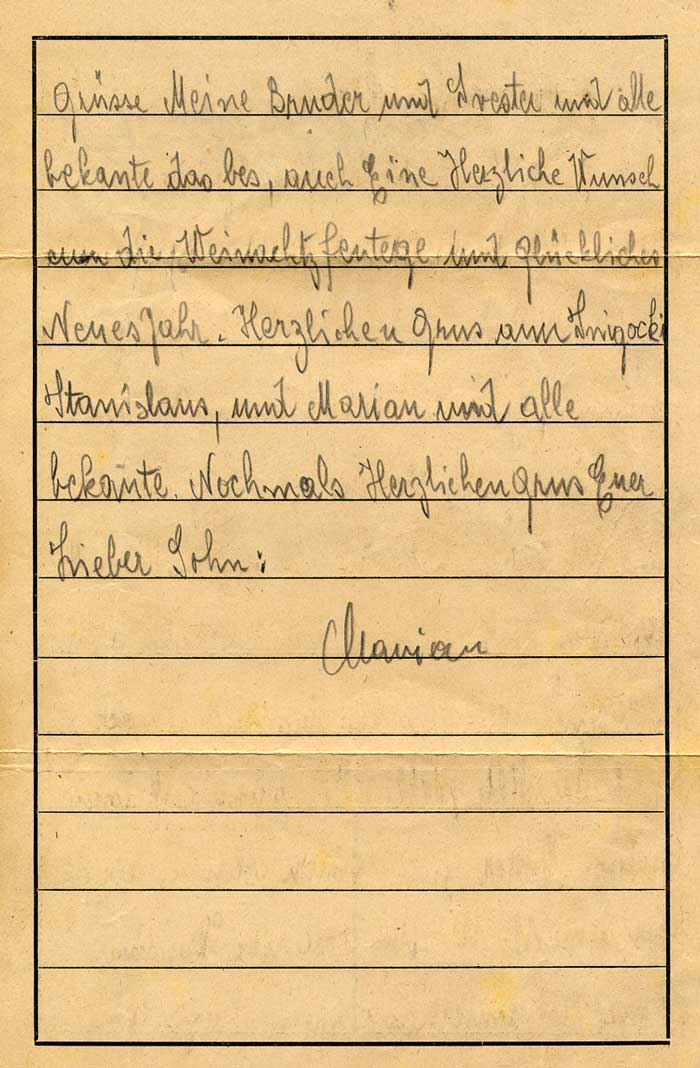 Grüsse Meine Bruder und Svester und alle
bekante das bes, auch Eine Herzliche Wunsch
zum die Weinachtzfentege und glückliches
Neues Jahr. Herzlichen Grus an
Stanislaus, und Marian und alle
bekante. Nochmals Herzlichen grus Euer
Lieber Sohn:
Marian